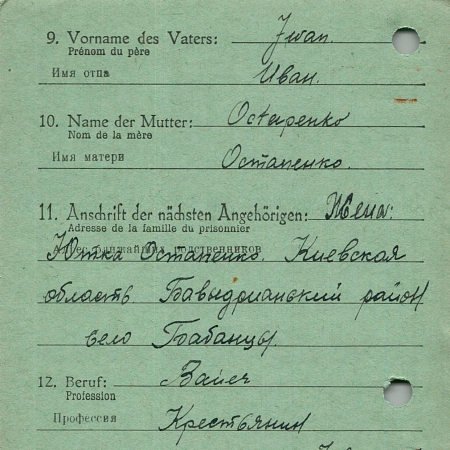 9. Vorname des Vaters: Jwan.
Prénom du père
Имя отца Иван.
10. Name der Mutter: Ostapenko
Nom de la mère
Имя матери Остапенко.
11. Anschrift der nächsten Angehörigen: Жена:
Adresse de la famille du prisonnier
Адрес ближайших родственников
Остапенко. Киевская
область район
село Бабанцы.
12. Beruf:
Profession
Профессия Крестьянин